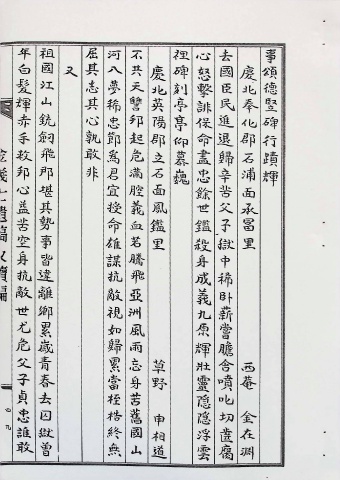 事頌德竪碑行蹟輝
慶北奉化郡石浦面承富里　西菴　金在淵
去國臣民進退歸辛苦父子獄中稀臥薪嘗膽含噴叱切齒腐
心怒擊誹保命盡忠餘世鑑殺身成義九原輝壯靈隱隱浮雲
裡碑刻亭亭仰慕巍
慶北英陽郡立石面鳳鑑里　草野　申相道
不共天讐邦起危滿腔義血若騰飛亞洲風雨忘身苦舊國山
河入夢稀忠節爲君宜授命雄謀抗敵視如歸累當桎梏終無
屈其志其心孰敢非
又
祖國江山銃劒飛那堪其勢事皆違離鄕累歲青春去囚獄曾
年白髮輝赤手救邦心益苦空身抗敵世尤危父子貞忠誰敢
遺稿
續編
四九